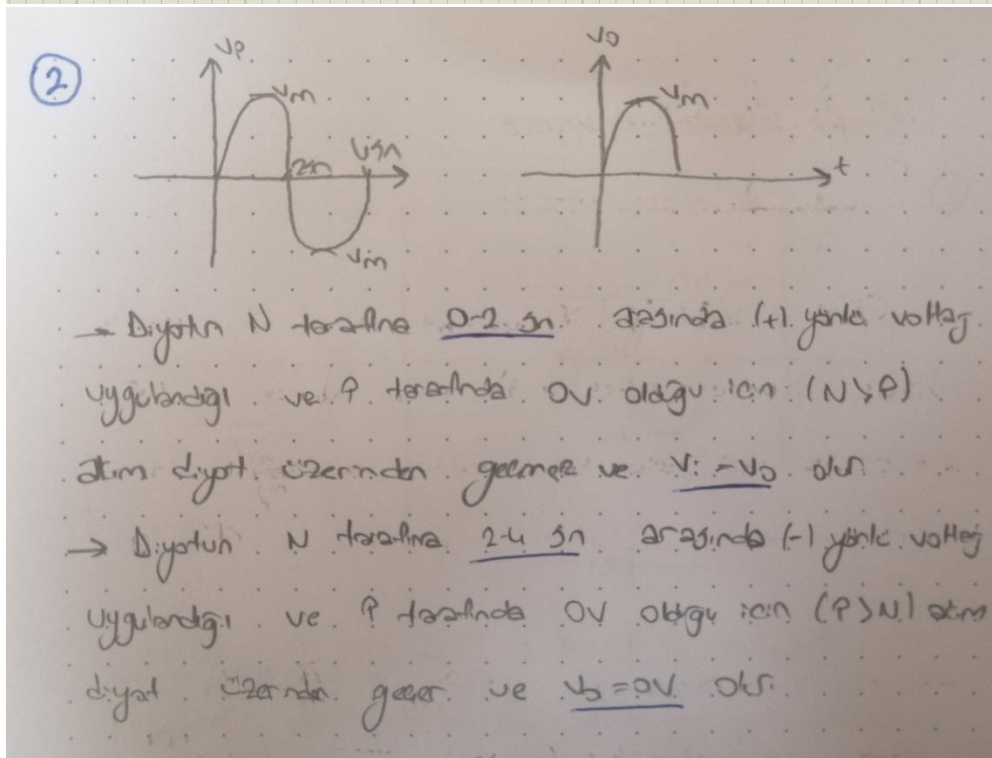 2
Vi Vo
Vm Vm
2sn 4sn t
Vm
→ Diyotun N tarafına 0-2 sn arasında (+) yönlü voltaj
uygulandığı ve P tarafında 0V olduğu için (N>P)
akım diyot üzerinden geçmez ve Vi = Vo olur.
→ Diyotun N tarafına 2-4 sn arasında (-) yönlü voltaj
uygulandığı ve P tarafında 0V olduğu için (P>N) akım
diyot üzerinden geçer ve Vo = 0V olur.